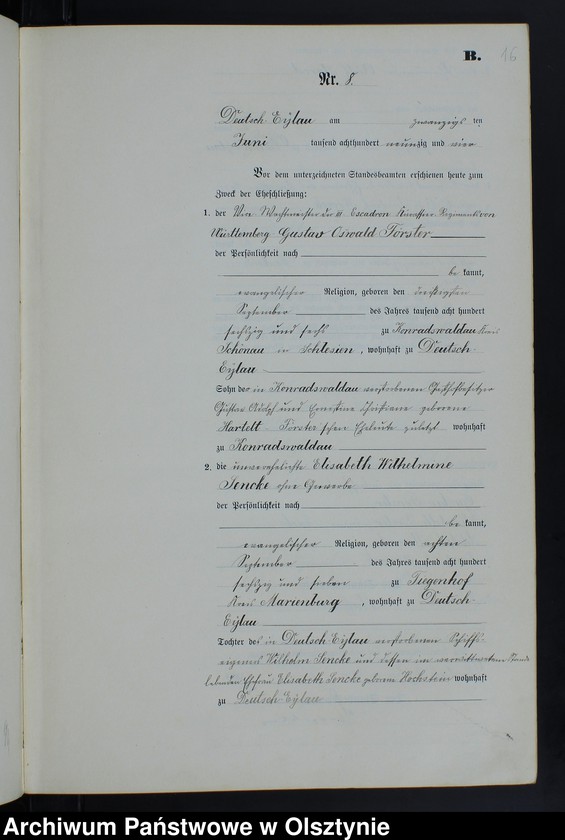 B. 16
Nr. 8.
Deutsch Eylau am zwanzigsten
Juni tausend achthundert neunzig und vier
Vor dem unterzeichneten Standesbeamten erschienen heute zum
Zweck der Eheschließung:
1. der Vice Wachtmeister der III Escadron Kürassier Regiments von
Württemberg Gustav Oswald Förster
der Persönlichkeit nach
be kannt,
evangelischer Religion, geboren den dreißigsten
September des Jahres tausend acht hundert
sechszig und sechs zu Konradswaldau Kreis
Schönau in Schlesien, wohnhaft zu Deutsch
Eylau
Sohn der in Konradswaldau verstorbenen
Gustav Adolph und Ernestine Christiane geborene
Förster'schen Eheleute zuletzt wohnhaft
zu Konradswaldau
2. die unverehelichte Elisabeth Wilhelmine
Jencke ohne Gewerbe
der Persönlichkeit nach
be kannt,
evangelischer Religion, geboren den achten
September des Jahres tausend acht hundert
sechszig und sieben zu Tiegenhof
Kreis Marienburg, wohnhaft zu Deutsch
Eylau
Tochter des in Deutsch Eylau verstorbenen Schiffs
eigners Wilhelm Jencke und dessen im
lebenden Ehefrau Elisabeth Jencke geborene Hochstein wohnhaft
zu Deutsch Eylau
Archiwum Państwowe w Olsztynie